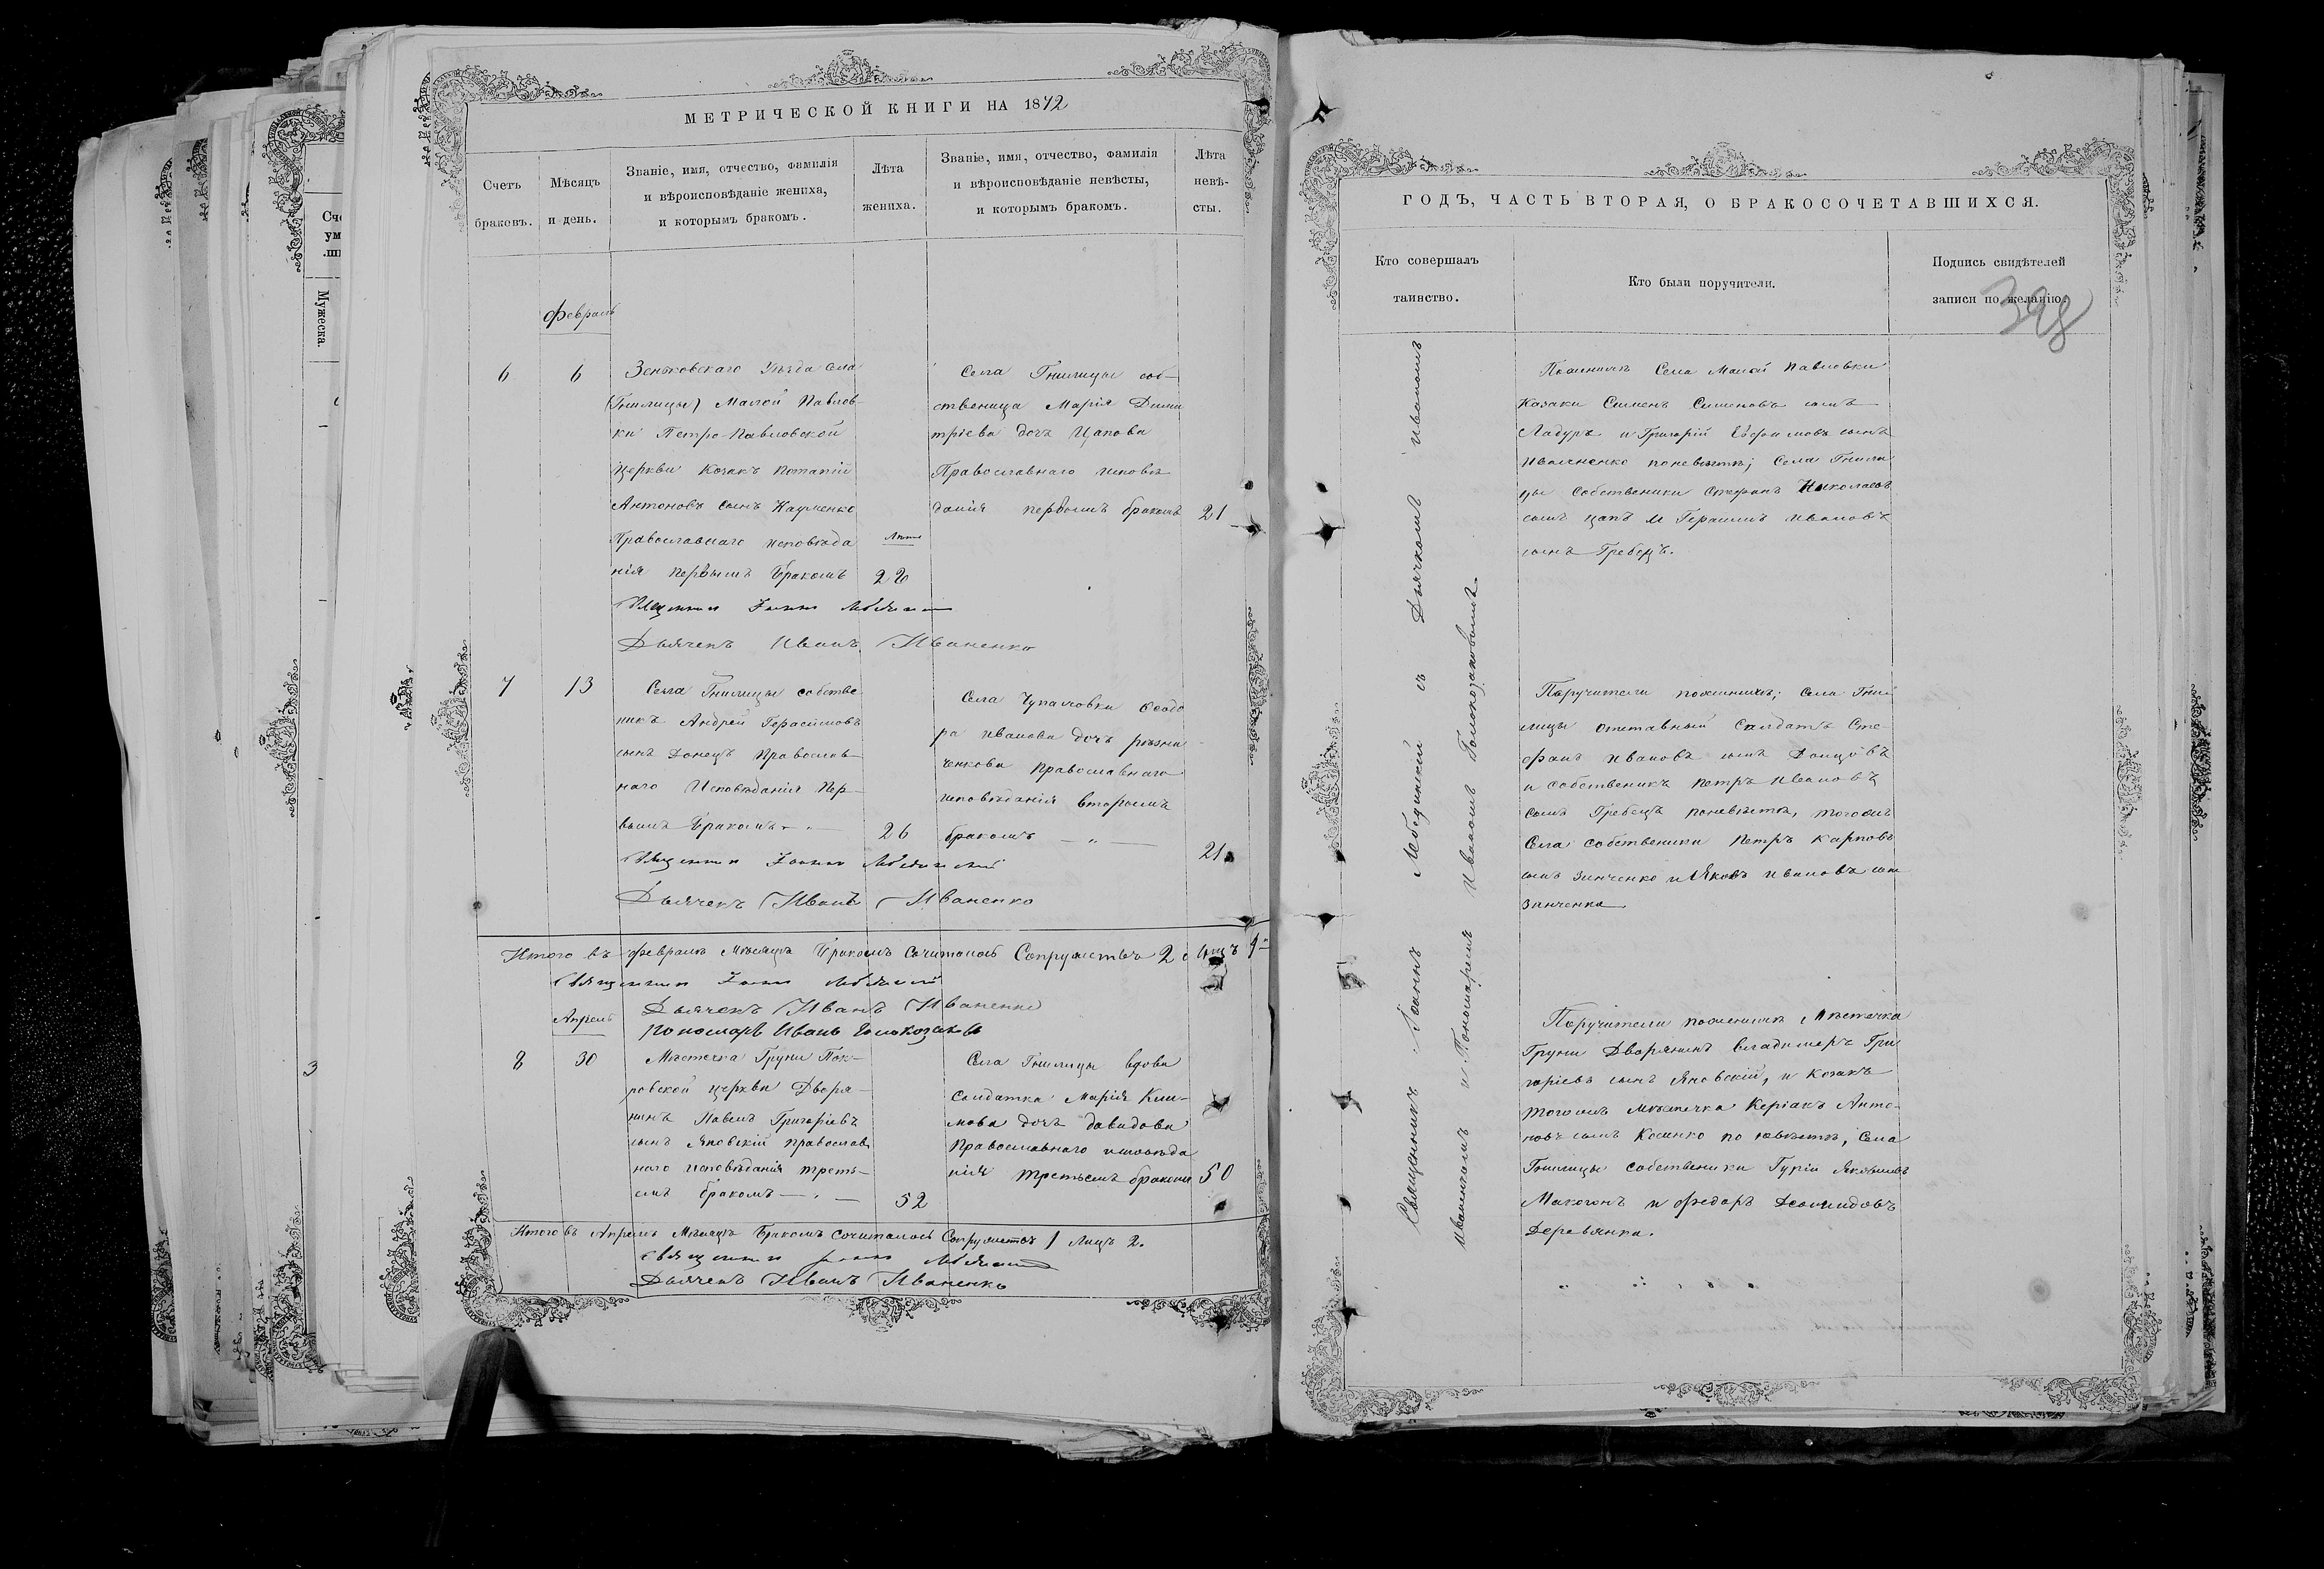 МЕТРИЧЕСКОЙ КНИГИ НА 1872
Счетъ браковъ.
Мѣсяцъ и день.
Званіе, имя, отчество, фамилія
и вѣроисповѣданіе жениха,
и которымъ бракомъ.
Лѣта
жениха.
Званіе, имя, отчество, фамилія
и вѣроисповѣданіе невѣсты,
и которымъ бракомъ.
Лѣта
невѣ-
сты.
Февраль
6
6
Зеньковскаго Уѣзда села
(Гнилицы) Малой Павлов-
ки Петро-Павловской
Церкви Козакъ Потапій
Антоновъ сынъ Науменко
Православнаго исповѣда
нія первымъ бракомъ
Села Гнилицы соб-
ственица Марія Дими
тріева дочь Цапова
Православнаго исповѣ
данія первымъ бракомъ 21
Дьячекъ Иванъ Иваненко
7
13
Села Гнилицы собстве
никъ Андрей Герасимовъ
сынъ Донецъ Православ-
наго Исповѣданія Пер-
вымъ бракомъ 26
Села Чупаховки Феодо
ра Иванова дочь
ченкова Православнаго
исповѣданія вторымъ
бракомъ 21
Дьячекъ Иванъ Иваненко
Итого въ Февралѣ Мѣсяцѣ бракомъ сочиталось Супружествъ 2
Дьячекъ Иванъ Иваненко
Пономарь Иванъ Голоказаковъ
Апрель
8
30
Мѣстечка Груни Пок-
ровской церкви Дворя-
нинъ Павелъ Григоріевъ
сынъ Яновскій православ
наго исповѣданія треть-
имъ бракомъ 52
Села Гнилицы вдова
Солдатка Марія Кли-
мова дочь Давидова
Православнаго исповѣда
нія третьимъ бракомъ 50
Итого въ Апрелѣ Мѣсяцѣ бракомъ сочиталось Супружествъ 1 лицъ 2.
Дьячекъ Иванъ Иваненко
ГОДЪ, ЧАСТЬ ВТОРАЯ, О БРАКОСОЧЕТАВШИХСЯ.
Кто совершалъ
таинство.
Кто были поручители.
Подпись свидѣтелей
записи по желанію.
398
Священникъ Іоаннъ Лебединскій съ Дьячкомъ Иваномъ
Иваненкомъ и Пономаремъ Иваномъ Голоказаковымъ.
По женихѣ Села Малой Павловки
Козаки Сименъ Сименовъ сынъ
и Григорій Евфимовъ сынъ
Иваненко по невѣстѣ; Села Гнили
цы Собственики Стефанъ Николаевъ
сынъ Цапъ и Герасимъ Ивановъ
сынъ Гребецъ.
Поручители по женихѣ; Села Гни
лицы отставный Солдатъ Сте-
фанъ Ивановъ сынъ Донцовъ
и собственикъ Петръ Ивановъ
сынъ Гребецъ по невѣстѣ, тогожъ
Села собственики Петръ Карповъ
сынъ Зинченко и Яковъ Ивановъ сын
Зинченко
Поручители по женихѣ Мѣстечка
Груни Дворянинъ Владимеръ Гри
горіевъ сынъ Яновскій, и Козакъ
тогожъ мѣстечка Керіакъ Анто-
новъ сынъ Косинко по невѣстѣ, Села
Гнилицы собственики Гурій Яковлевъ
Макогонъ и Федоръ Леонидовъ
Деревянка.
Сче
ум
ши
Мужеска.
3